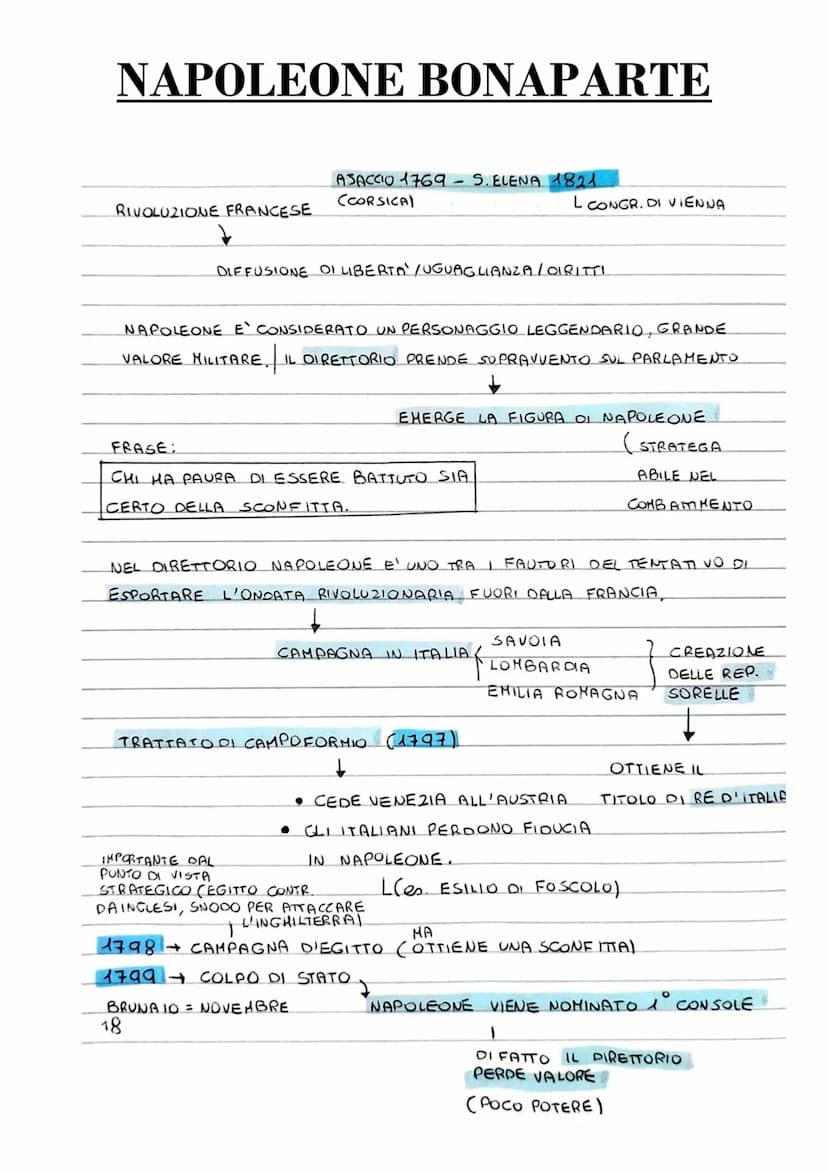 NAPOLEONE BONAPARTE
AJACCIO 1769 - S. ELENA 1821
(CORSICA)
L CONGR. DI VIENNA
RIVOLUZIONE FRANCESE
↓
DIFFUSIONE DI LIBERTA'/UGUAGLIANZA/DIRITTI
NAPOLEONE E' CONSIDERATO UN PERSONAGGIO LEGGENDARIO, GRANDE
VALORE MILITARE. | IL DIRETTORIO PRENDE SOPRAVVENTO SUL PARLAMENTO
↓
EMERGE LA FIGURA DI NAPOLEONE
( STRATEGA
ABILE NEL
COMBATTIMENTO
FRASE:
CHI HA PAURA DI ESSERE BATTUTO SIA
CERTO DELLA SCONFITTA.
NEL DIRETTORIO NAPOLEONE E' UNO TRA I FAUTORI DEL TENTATIVO DI
ESPORTARE L'ONDATA RIVOLUZIONARIA FUORI DALLA FRANCIA.
↓
CAMPAGNA IN ITALIA
SAVOIA
LOMBARDIA
EMILIA ROMAGNA
CREAZIONE
DELLE REP.
SORELLE
↓
OTTIENE IL
TITOLO DI RE D'ITALIA
TRATTATO DI CAMPOFORMIO (1797)
↓
• CEDE VENEZIA ALL'AUSTRIA
• GLI ITALIANI PERDONO FIDUCIA
IN NAPOLEONE.
L(es. ESILIO DI FOSCOLO)
IMPORTANTE DAL
PUNTO DI VISTA
STRATEGICO (EGITTO CONTR.
DA INGLESI, SNODO PER ATTACCARE
L'INGHILTERRA)
1798 → CAMPAGNA D'EGITTO (MA OTTIENE UNA SCONFITTA)
1799 → COLPO DI STATO
BRUNAIO = NOVEMBRE
18
NAPOLEONE VIENE NOMINATO 1° CONSOLE
DI FATTO IL DIRETTORIO
PERDE VALORE
(POCO POTERE)